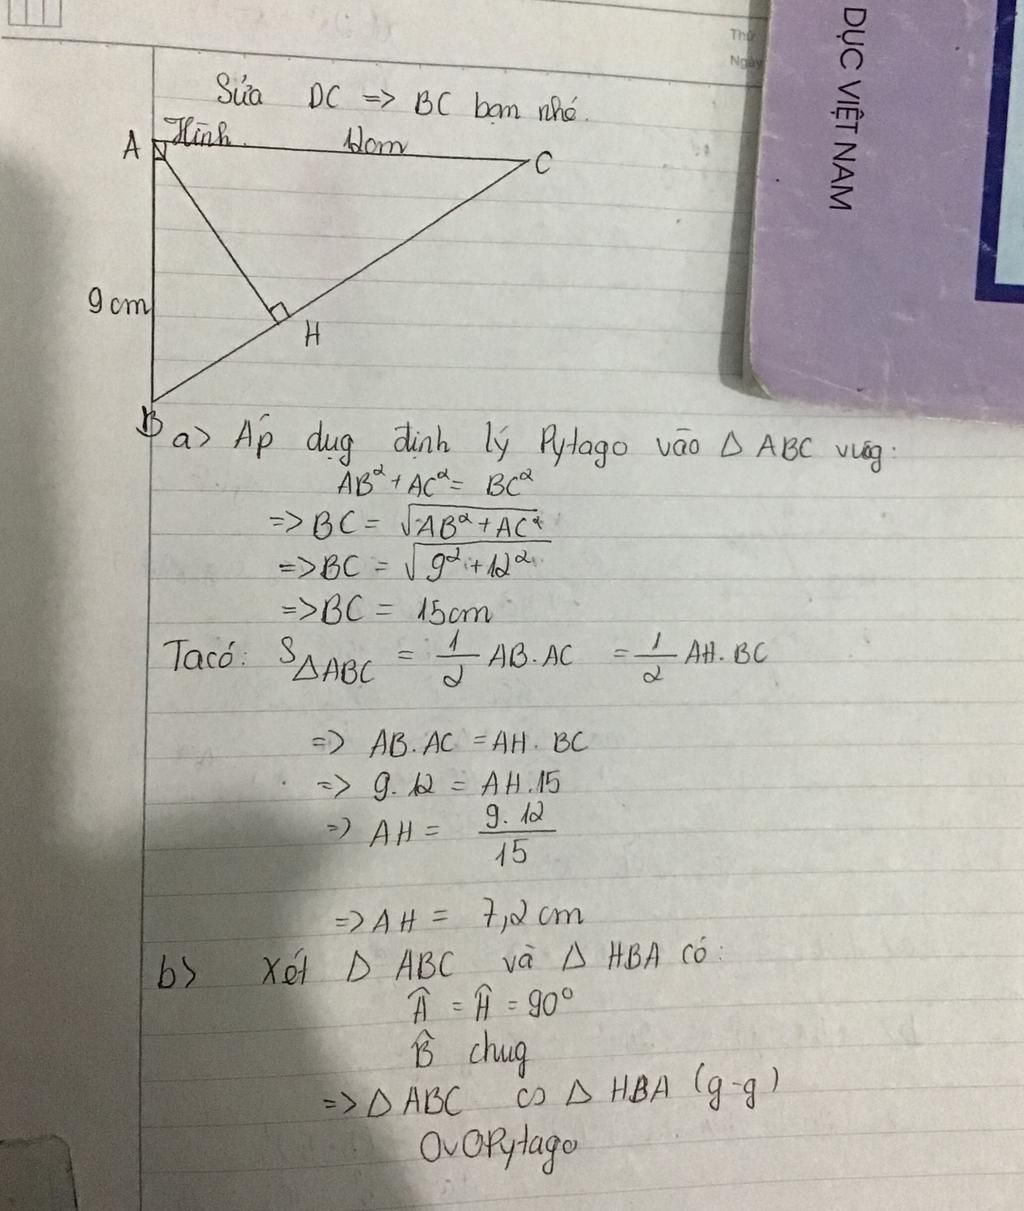 Thứ
Ngày
DỤC VIỆT NAM
Sửa DC => BC bạn nhé.
Hình
A
12cm
C
9cm
H
B
a> Áp dụg định lý Pytago vào Δ ABC vuôg:
AB² + AC² = BC²
=> BC = √(AB² + AC²)
=> BC = √(9² + 12²)
=> BC = 15cm
Ta có: S ΔABC = 1/2 AB.AC = 1/2 AH.BC
=> AB.AC = AH.BC
=> 9.12 = AH.15
=> AH = 9.12/15
=> AH = 7,2cm
b> Xét Δ ABC và Δ HBA có:
Â = Ĥ = 90°
B̂ chug
=> Δ ABC ∽ Δ HBA (g-g)
OvOPytago